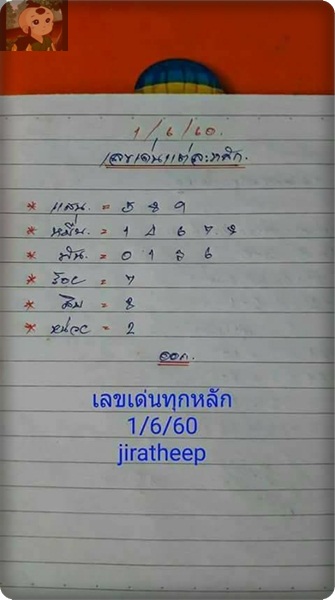 1/6/60.
เลขเด่นแต่ละหลัก.
* แสน. = 5 8 9
* หมื่น. = 1 4 6 7 8
* พัน. = 0 1 5 6
* ร้อย = 7
* สิบ = 8
* หน่วย = 2
ออก.
เลขเด่นทุกหลัก
1/6/60
jiratheep